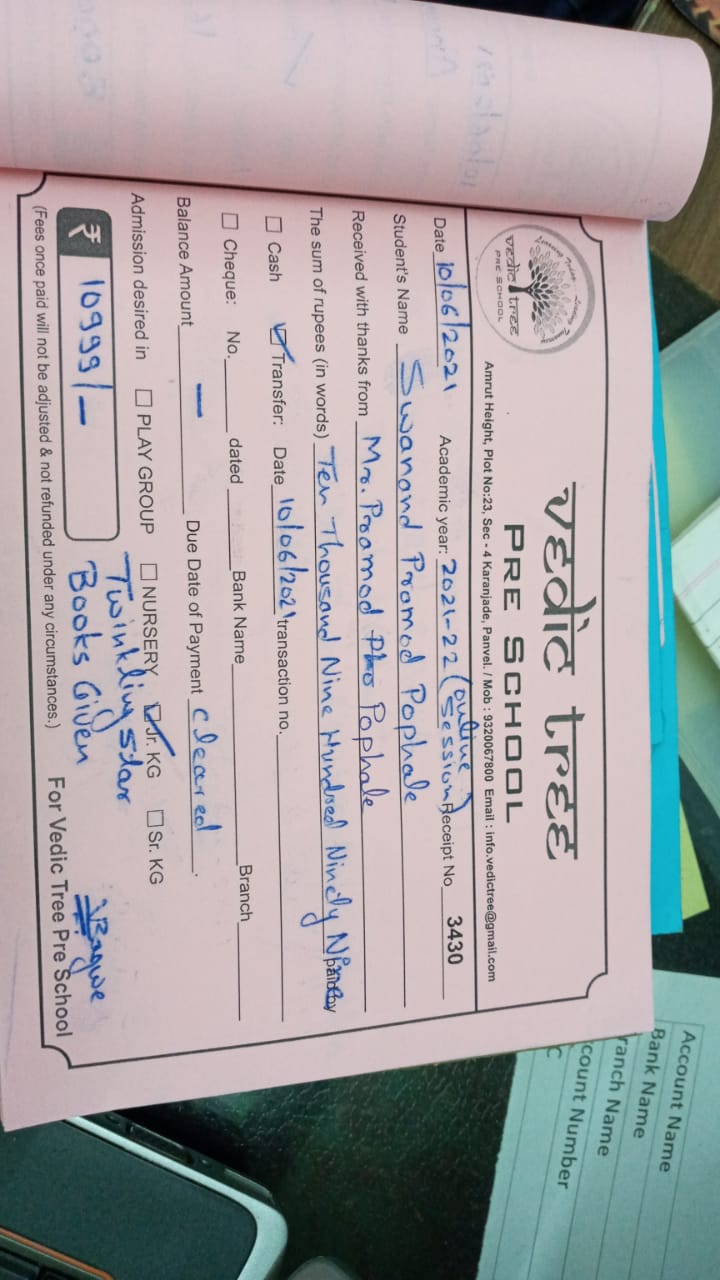 vedic tree
PRE SCHOOL
vedic tree
PRE SCHOOL
Amrut Height, Plot No:23, Sec - 4 Karanjade, Panvel. / Mob : 9320067800 Email : info.vedictree@gmail.com
Date 10/06/2021 Academic year: 2021-22 (Online Session) Receipt No 3430
Student's Name Swanand Pramod Pophale
Received with thanks from Mr. Pramod Pophale
The sum of rupees (in words) Ten Thousand Nine Hundred Ninety Nine paid by
Cash Transfer: Date 10/06/2021 transaction no.
Cheque: No. dated Bank Name Branch
Balance Amount — Due Date of Payment Cleared.
Admission desired in PLAY GROUP NURSERY Jr. KG Sr. KG
Twinkling Star
₹ 10999/- Books Given
(Fees once paid will not be adjusted & not refunded under any circumstances.) For Vedic Tree Pre School
Account Name
Bank Name
ranch Name
count Number